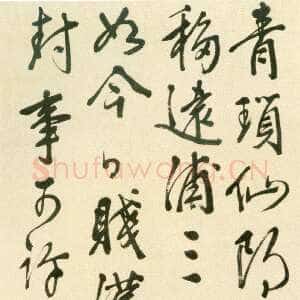 青瑣仙
遠浦三
如今賤
封事可許
Shufawang.CN